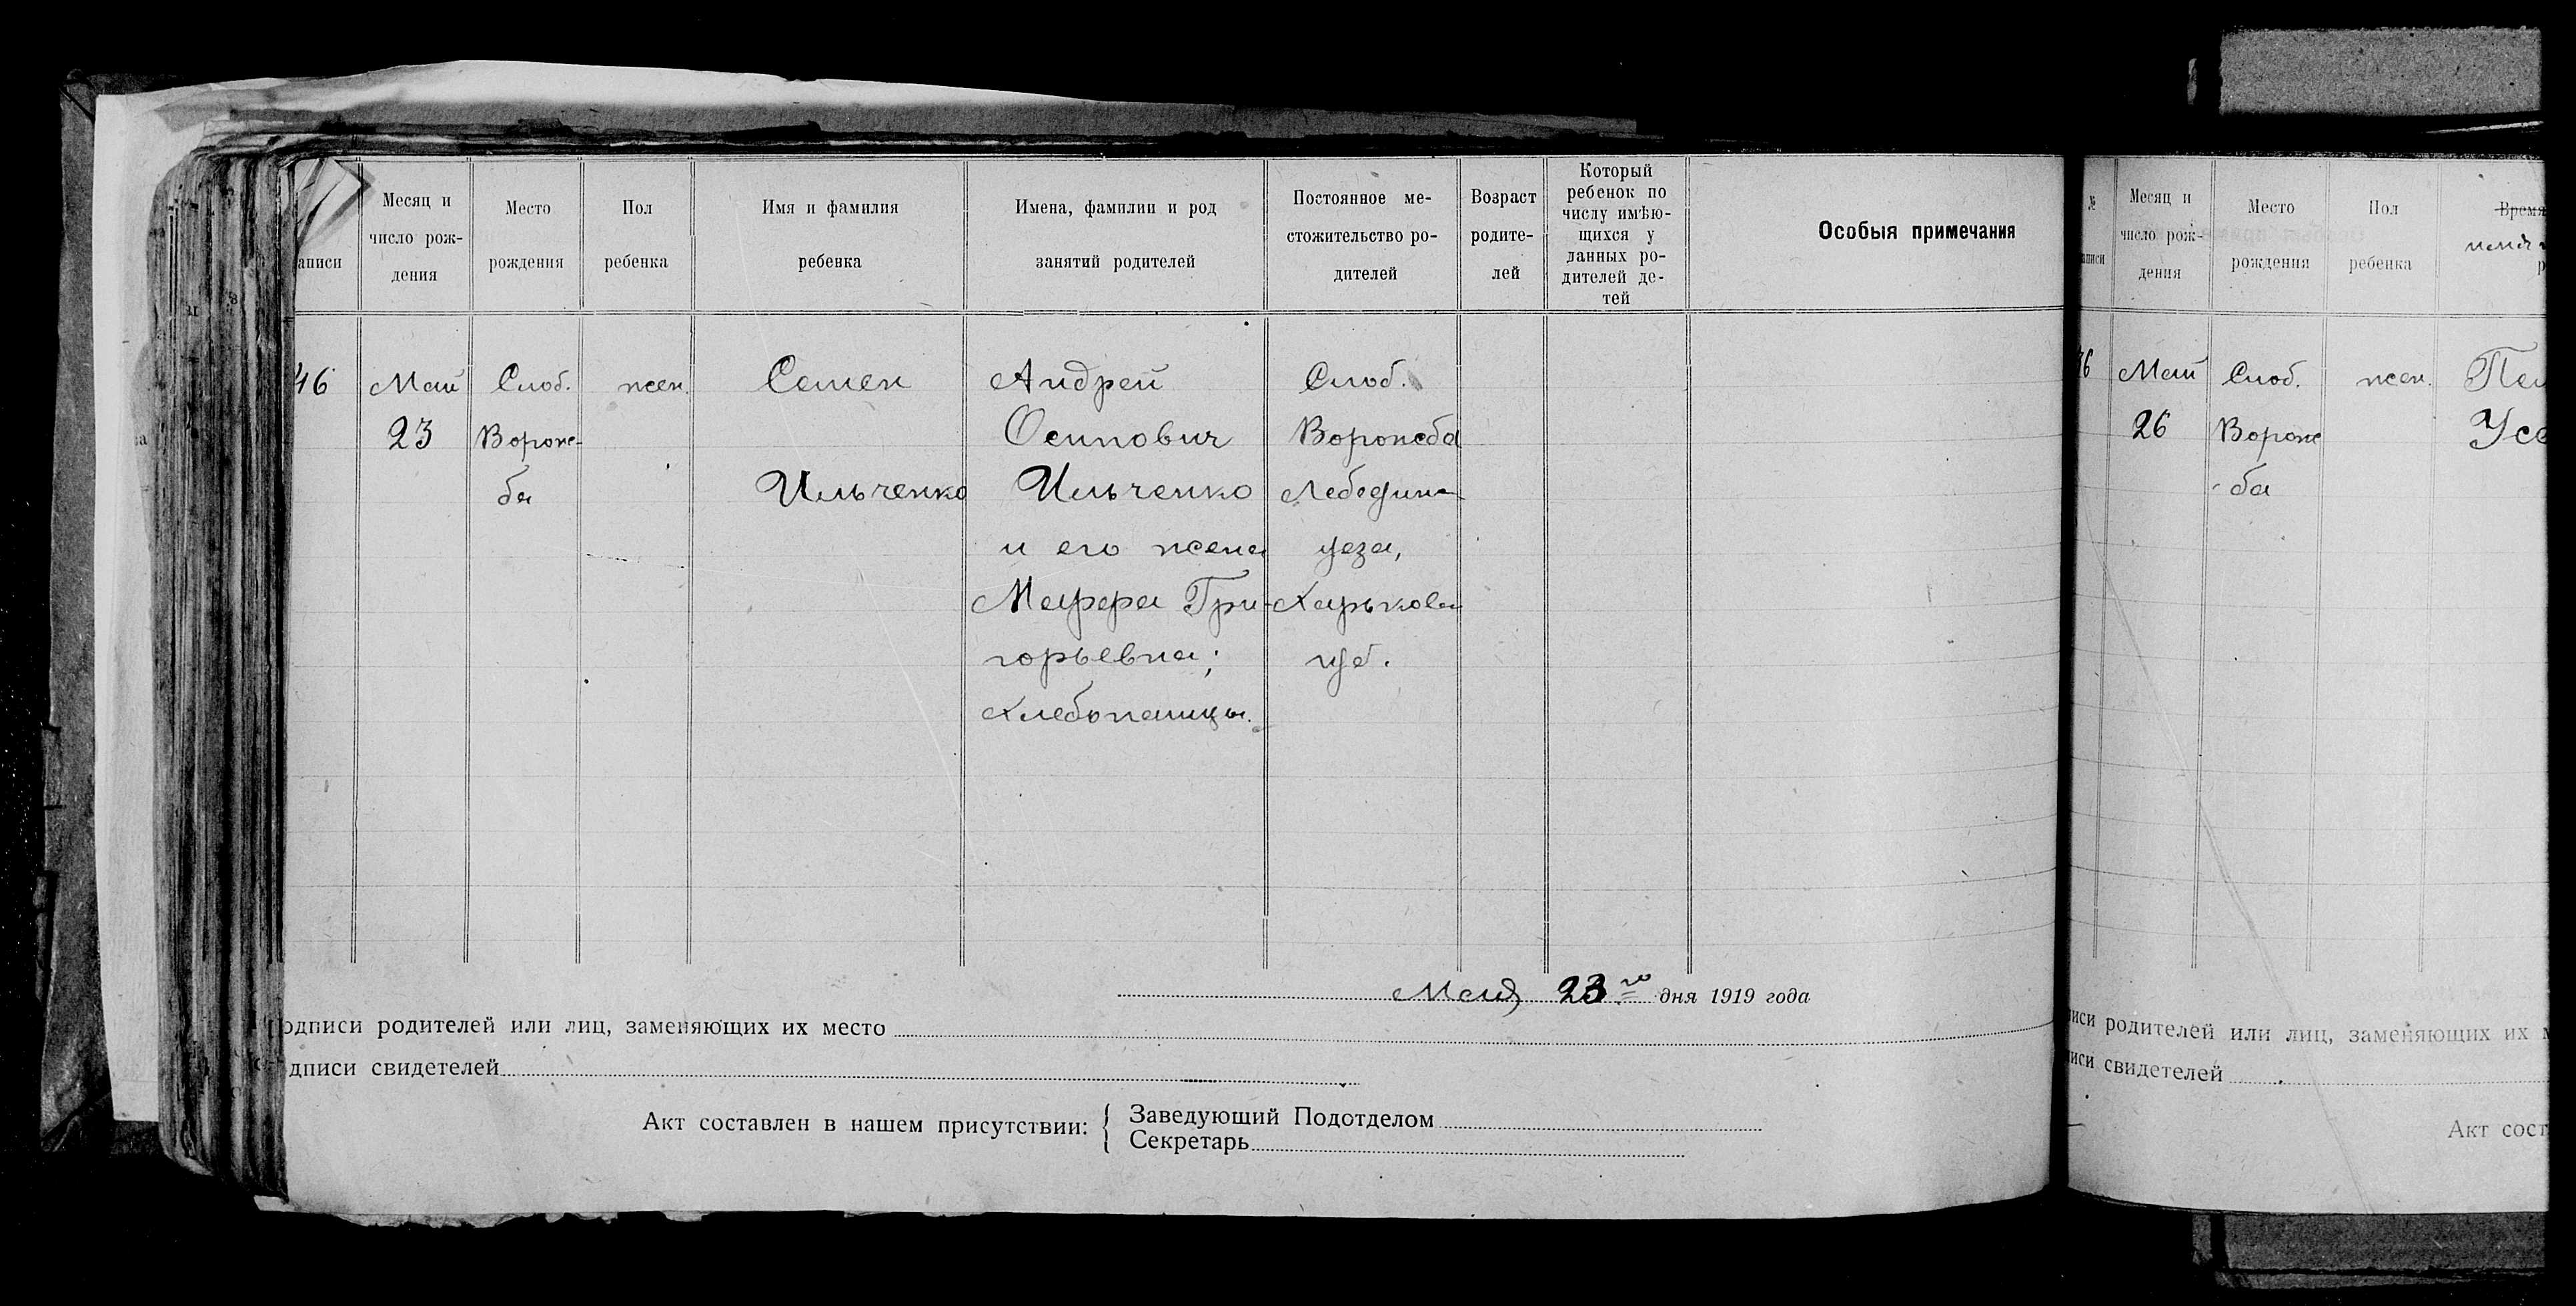 аписи
Месяц и
число рож-
дения
Место
рождения
Пол
ребенка
Имя и фамилия
ребенка
Имена, фамилии и род
занятий родителей
Постоянное ме-
стожительство ро-
дителей
Возраст
родите-
лей
Который
ребенок по
числу имѣю-
щихся у
данных ро-
дителей де-
тей
Особыя примечания
46
Май
23
Слоб.
Вороже-
ба
жен.
Семен
Ильченко
Андрей
Осипович
Ильченко
и его жена
Марфа Гри-
горьевна;
хлебопашцы.
Слоб.
Ворожба
Лебедин-
уезд,
Харьков
губ.
Мая 23го дня 1919 года
одписи родителей или лиц, заменяющих их место
дписи свидетелей
Акт составлен в нашем присутствии:
Заведующий Подотделом
Секретарь
№
аписи
Месяц и
число рож-
дения
Место
рождения
Пол
ребенка
Время
6
Май
26
Слоб.
Вороже
ба
жен.
Усе
иси родителей или лиц, заменяющих их м
иси свидетелей
Акт сост